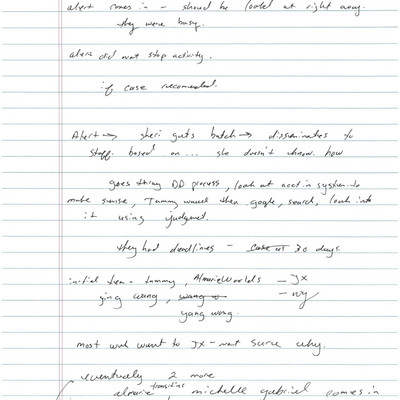 alert comes in - should be looked at right away.
they were busy.
alert did not stop activity.
if case recommended.
Alert → sheri gets batch → disseminates to
staff. based on ... she doesn't know how
goes through DD process, look at acct in system to
make sense, Tammy would then google, search, look into
it using judgment.
they had deadlines - 30 days.
initial team - tammy, Almarie Worlds - JX
ying wang, wang - NY
yang wong.
most work went to JX - not sure why.
eventually 2 more
almarie transition, michelle gabriel comes in